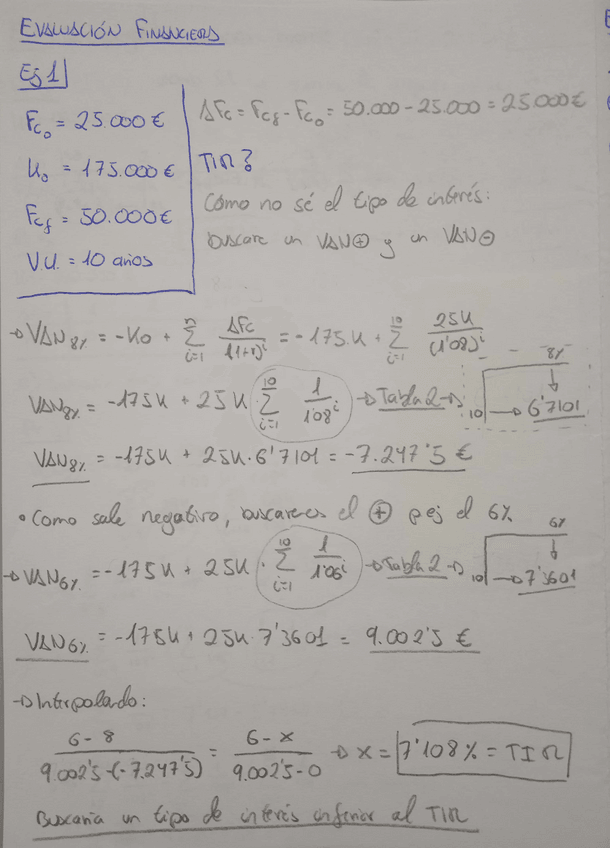 EVALUACIÓN FINANCIERA
Ej 1
Fc₀ = 25.000 €
K₀ = 175.000 €
Fcf = 50.000 €
V.U. = 10 años
ΔFc = Fcf - Fc₀ = 50.000 - 25.000 = 25.000 €
TIR?
Cómo no sé el tipo de interés:
buscare un VAN⊕ y un VAN⊖
→ VAN8% = -K₀ + Σ(i=1, n) ΔFc/(1+r)^i = -175K + Σ(i=1, 10) 25K/(1'08)^i
VAN8% = -175K + 25K Σ(i=1, 10) 1/1'08^i → Tabla 2 → 10 → 8% ↓ 6'7101
VAN8% = -175K + 25K·6'7101 = -7.247'5 €
• Como sale negativo, buscaremos el ⊕ pej el 6%
→ VAN6% = -175K + 25K · Σ(i=1, 10) 1/1'06^i → Tabla 2 → 10 → 6% ↓ 7'3601
VAN6% = -175K + 25K·7'3601 = 9.002'5 €
→ Interpolando:
(6-8)/(9.002'5-(-7.247'5)) = (6-x)/(9.002'5-0) → x = 7'108% = TIR
Buscaria un tipo de interés inferior al TIR